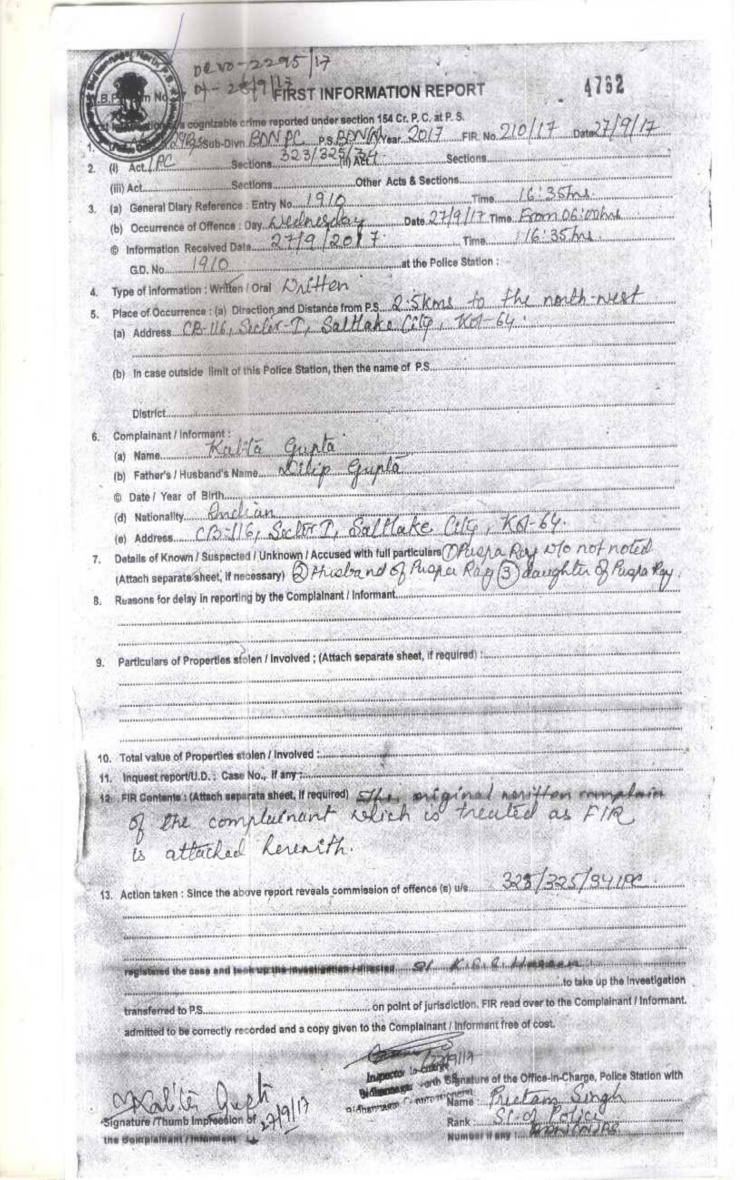 DRVO-2295/17
Dt-28/9/17
FIRST INFORMATION REPORT 4762
cognizable crime reported under section 154 Cr. P. C. at P. S.
1. Sub-Divn BDN PC P.S. BDN(N) Year 2017 FIR. No. 210/17 Date 27/9/17
2. (i) Act IPC Sections 323/325/34 (ii) Act Sections
(iii) Act Sections Other Acts & Sections
3. (a) General Diary Reference : Entry No. 1910 Time 16:35hrs
(b) Occurrence of Offence : Day Wednesday Date 27/9/17 Time From 06:00hrs
© Information Received Date 27/9/2017 Time 16:35hrs
G.D. No. 1910 at the Police Station :
4. Type of Information : Written / Oral Written
5. Place of Occurrence : (a) Direction and Distance from P.S. 2.5kms to the north-west
(a) Address CB-116, Sector-I, Saltlake City, Kol-64.
(b) In case outside limit of this Police Station, then the name of P.S.
District
6. Complainant / Informant :
(a) Name Kabita Gupta
(b) Father's / Husband's Name Dilip Gupta
© Date / Year of Birth
(d) Nationality Indian
(e) Address CB-116, Sector I, Saltlake City, Kol-64.
7. Details of Known / Suspected / Unknown / Accused with full particulars ① Puspa Ray W/o not noted
(Attach separate sheet, if necessary) ② Husband of Puspa Ray ③ daughter of Puspa Ray.
8. Reasons for delay in reporting by the Complainant / Informant
9. Particulars of Properties stolen / Involved ; (Attach separate sheet, if required) :
10. Total value of Properties stolen / Involved :
11. Inquest report/U.D. : Case No., if any :
12. FIR Contents : (Attach separate sheet, if required) The original written complain
of the complainant which is treated as FIR
is attached herewith.
13. Action taken : Since the above report reveals commission of offence (s) u/s 323/325/34 IPC
registered the case and took up the investigation / directed SI K.G.R. Hassan
to take up the investigation
transferred to P.S. on point of jurisdiction. FIR read over to the Complainant / Informant.
admitted to be correctly recorded and a copy given to the Complainant / Informant free of cost.
27/9/17
Inspector In-charge
Signature of the Office-in-Charge, Police Station with
Kabita Gupta
27/9/17
Signature /Thumb Impression of
the Complainant / Informant
Name : Preetam Singh
Rank : SI of Police
Number if any :